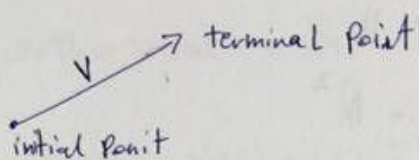 terminal Point
V
initial Ponit